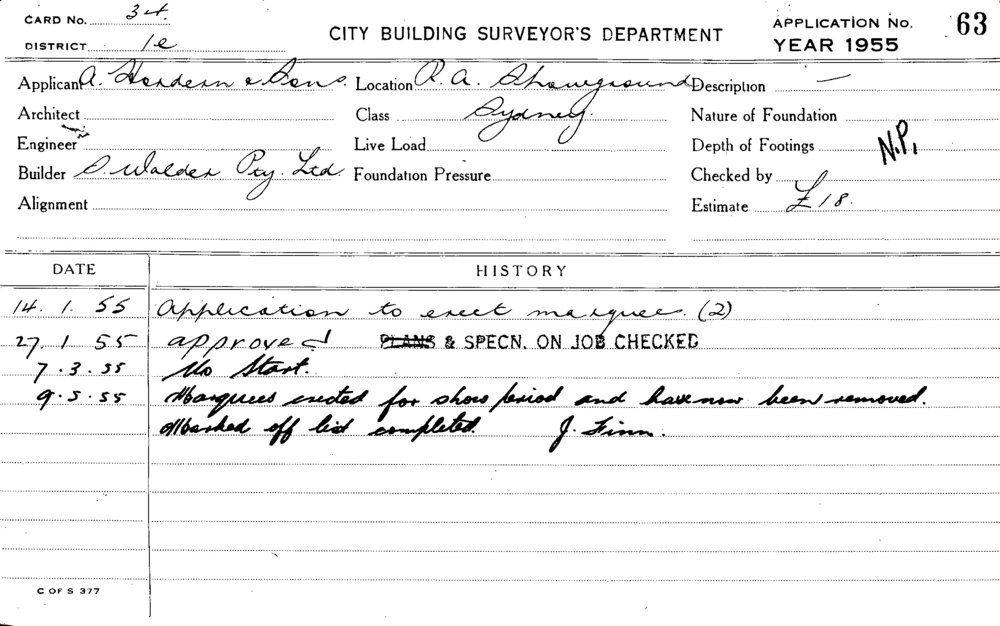 CARD No. 34.
DISTRICT 1e
CITY BUILDING SURVEYOR'S DEPARTMENT
APPLICATION No. 63
YEAR 1955
Applicant A. Hordern & Sons. Location R. A. Showground Description —
Architect Class Sydney. Nature of Foundation
Engineer Live Load Depth of Footings N.P.
Builder S. Walder Pty. Ltd. Foundation Pressure Checked by
Alignment Estimate £18.
DATE HISTORY
14. 1. 55 Application to erect marquee. (2)
27. 1. 55 approved PLANS & SPECN. ON JOB CHECKED
7. 3. 55 No Start.
9. 5. 55 Marquees erected for show period and have now been removed.
Marked off list completed. J. Finn.
C OF S 377